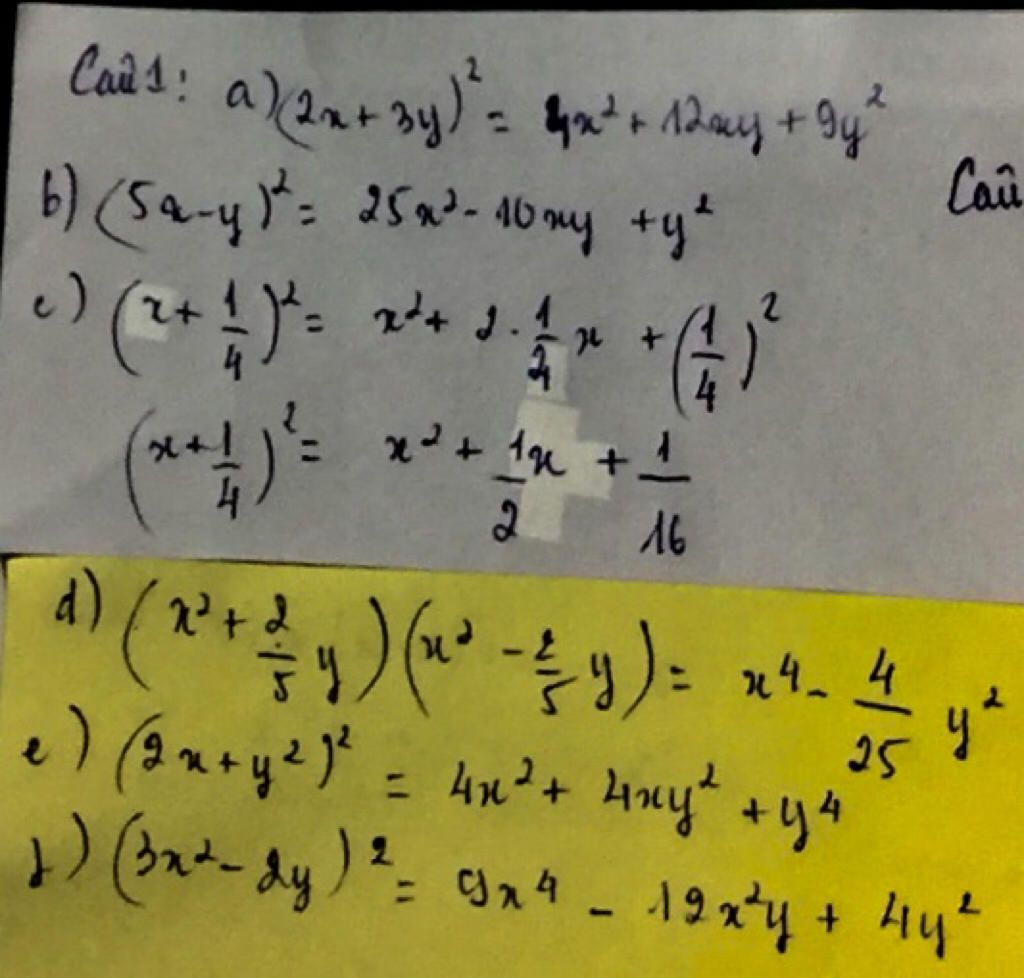 Câu 1: a) (2x + 3y)² = 4x² + 12xy + 9y²
b) (5x - y)² = 25x² - 10xy + y²
Câu
c) (x + 1/4)² = x² + 2 · 1/4 x + (1/4)²
(x + 1/4)² = x² + 1x/2 + 1/16
d) (x² + 2/5 y) (x² - 2/5 y) = x⁴ - 4/25 y²
e) (2x + y²)² = 4x² + 4xy² + y⁴
f) (3x² - 2y)² = 9x⁴ - 12x²y + 4y²